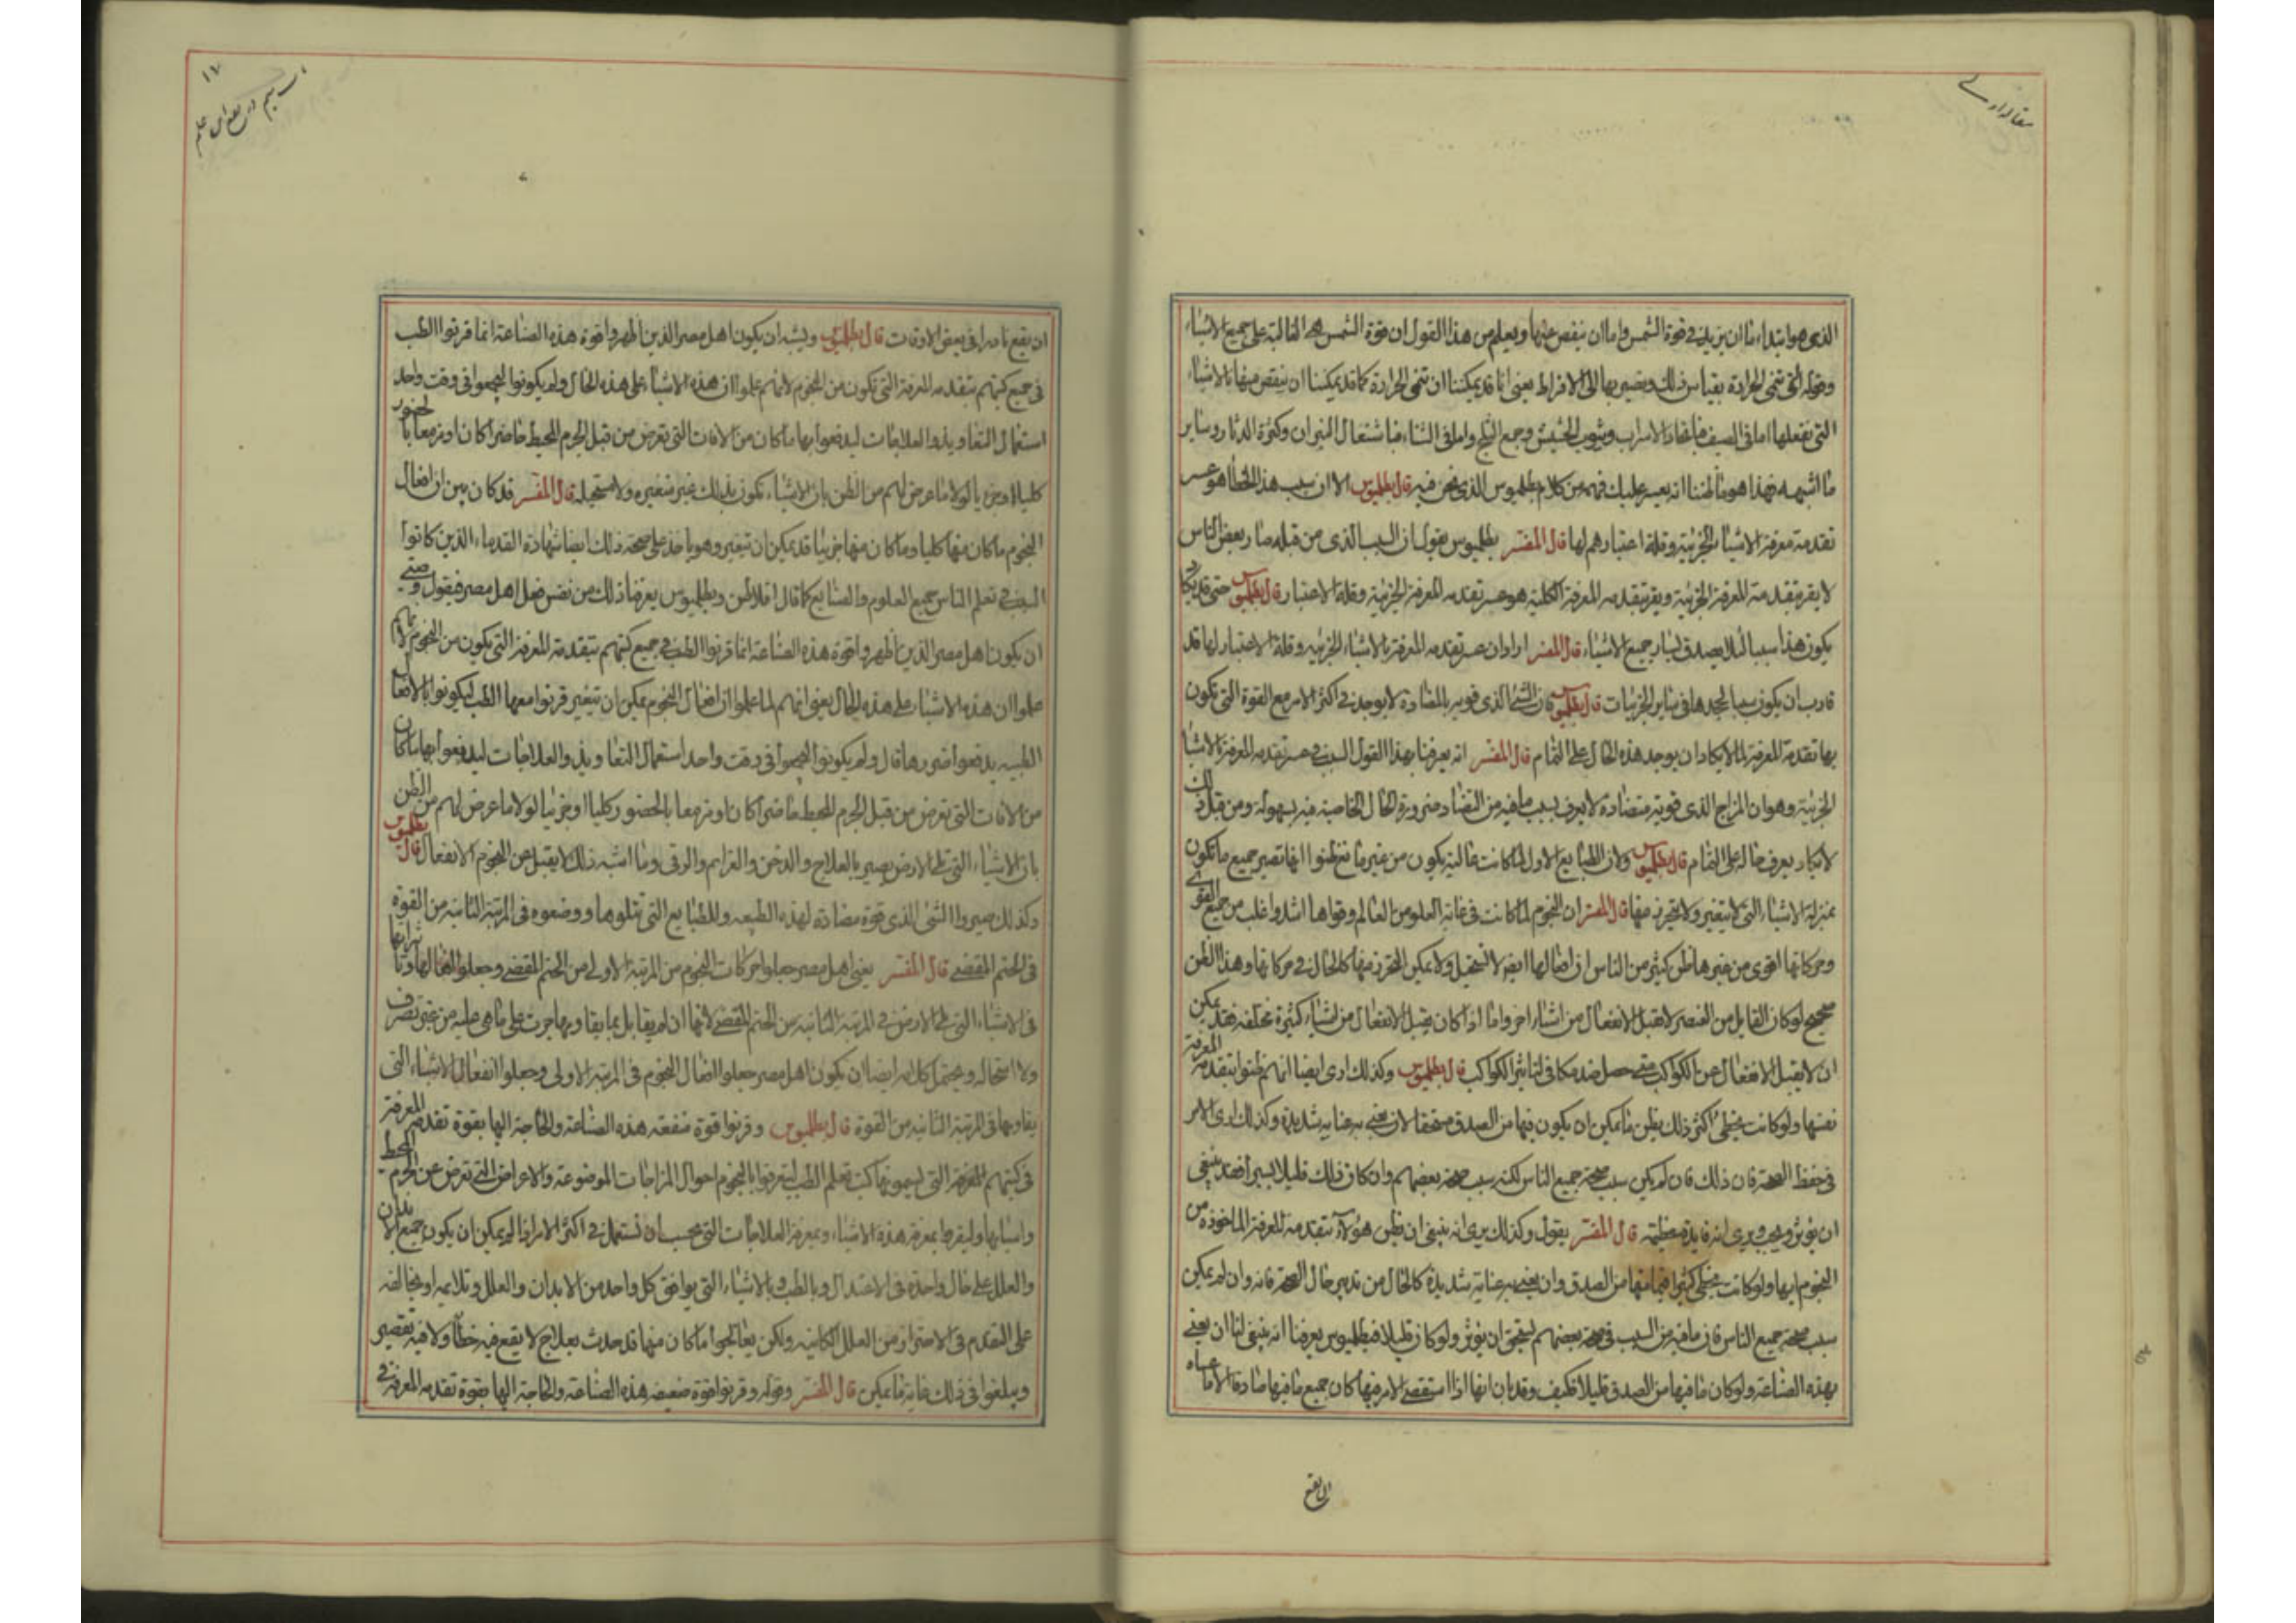 مقاله اولى
الذى هو ابتداء اما ان يزيد فى قوة الشمس واما ان ينقص عنها ويعلم من هذا القول ان قوة الشمس هى الغالبة على جميع الاشياء
وقوله التى تنمى الحرارة بقياس ذلك ويصير بها الى الافراط يعنى انا قد يمكننا ان تنمى الحرارة كما قد يمكننا ان ينقص منها بالاشياء
التى نفعلها اما فى الصيف فباتخاذ الاسراب وبيوت الخيش وجمع الثلج واما فى الشتاء فباشتعال النيران وكثرة الدثار وساير
ما اشبهه فهذا هو ما ظننا انه يعسر عليك فهمه من كلام بطلميوس الذى نحن فيه قال بطلميوس الا ان سبب هذا الخطأ هو عسر
تقدمة معرفة الاشياء الجزئية وقلة اعتبارهم لها قال المفسر بطلميوس يقول ان السبب الذى من قبله صار بعض الناس
لا يقر بتقدمة المعرفة الجزئية ويقر بتقدمه المعرفة الكلية هو عسر تقدمه المعرفة الجزئية وقلة الاعتبار قال بطلميوس حتى قد يكاد
يكون هذا سببا لئلا يصدق لساير جميع الاشياء قال المفسر اراد ان عسر تقدمه المعرفة بالاشياء الجزئيه وقلة الاعتبار لها قد
قارب ان يكون سببا لجحدها فى ساير الجزئيات قال بطلميوس فان الشئ الذى قوته بالمضادة لا يوجد فى اكثر الامر مع القوة التى تكون
بها تقدمة المعرفة لما لا يكاد ان يوجد هذه الحال على التمام قال المفسر انه يعرفنا بهذا القول السبب فى عسر تقدمه المعرفة بالاشياء
الجزئية وهو ان المزاج الذى قوته متضادة لا يعرف بسبب ما فيه من التضاد ضرورة الحال الخاصية فيه بسهولة ومن قبل ذلك
لا يكاد يعرف حاله على التمام قال بطلميوس ولان الطبايع الاول لما كانت غالبة يكون من غير مانع ظنوا انها تصير جميع ما تكون
بمنزلة الاشياء التى لا تتغير ولا يتحرز منها قال المفسر ان النجوم لما كانت فى غاية العلو من العالم وقواها اشد واغلب من جميع القوى
وحركاتها اقوى من غيرها ظن كثير من الناس ان افعالها ايضا لا تستحيل ولا يمكن التحرز منها كالحال فى حركاتها وهذا الظن
صحيح لو كان القابل من العنصر لا يقبل الانفعال من اشياء اخر واما اذا كان يقبل الانفعال من اشياء كثيرة مختلفه فقد يمكن
ان لا يقبل الانفعال من الكواكب متى حصل ضد مكافى لتاثير الكواكب قال بطلميوس وكذلك ارى ايضا انهم ظنوا بتقدمه المعرفة
نفسها ولو كانت يخطئ اكثر ذلك يظن ما يمكن ان يكون فيها من الصدق مستحقا لان يعنى به عنايه شديدة وكذلك ارى الامر
فى حفظ الصحة فان ذلك فان لم يكن سبب صحة جميع الناس لكنه سبب صحة بعضهم وان كان ذلك قليلا يسيرا فقد ينبغى
ان يؤثر ويحب ويرى انه فايدة عظيمة قال المفسر يقول وكذلك يرى انه ينبغى ان يظن هؤلاء بتقدمة المعرفة الماخوذة من
النجوم انها ولو كانت يخطى كثيرا فما فيها من الصدق وان يعنى به عناية شديدة كالحال من تدبير حال الصحة فانه وان لم يكن
سبب صحة جميع الناس فان ما فيه من السبب فى صحة بعضهم يستحق ان يؤثر ولو كان قليلا فبطلميوس يعرفنا انه ينبغى لنا ان يعنى
بهذه الصناعة ولو كان ما فيها من الصدق قليلا فكيف وقد بان انها اذا استقصى الامر فيها كان جميع ما فيها صادقا الا ما عساه
ان يقع
١٧
ان يقع نادرا فى بعض الاوقات قال بطلميوس ويشبه ان يكون اهل مصر الذين اظهروا قوة هذه الصناعة انما قرنوا الطب
فى جميع كتبهم بتقدمه المعرفة التى تكون من النجوم لانهم علموا ان هذه الاشياء على هذه الحال ولم يكونوا ليجمعوا فى وقت واحد
استعمال التعاويذ والعلاجات ليدفعوا بها ما كان من الافات التى تعرض من قبل الجرم المحيط حاضرا كان او مزمعا بالحضور
كليا او جزءيا لولا ما عرض لهم من الظن بان الاشياء تكون بذلك غير متغيره ولا مستحيله قال المفسر قد كان بين ان افعال
النجوم ما كان منها كليا وما كان منها جزءيا قد يمكن ان تتغير وهو ياخذ على صحة ذلك ايضا شهادة القدماء الذين كانوا
السبب فى تعلم الناس جميع العلوم والصنايع كما قال افلاطن وبطلميوس يعرفنا ذلك من نفس فعل اهل مصر فيقول وعسى
ان يكون اهل مصر الذين اظهروا قوة هذه الصناعة انما قرنوا الطب فى جميع كتبهم بتقدمة المعرفة التى يكون من النجوم لانهم
علموا ان هذه الاشياء على هذه الحال يعنى انهم لما علموا ان افعال النجوم يمكن ان تتغير قرنوا معها الطب ليكونوا بالافعال
الطبيه يدفعوا ضررها قال ولم يكونوا ليجمعوا فى وقت واحد استعمال التعاويذ والعلاجات ليدفعوا بها ما كان
من الافات التى تعرض من قبل الجرم المحيط حاضرا كان او مزمعا بالحضور كليا او جزئيا لولا ما عرض لهم من الظن
بان الاشياء التى على الارض يصير بالعلاج والدخن والعزايم والرقى وما اشبه ذلك لا يقبل من النجوم الانفعال قال بطلميوس
وكذلك صيروا الشئ الذى قوة مضادة لهذه الطبيعه وللطبايع التى تتلوها ووضعوه فى المرتبة الثانية من القوة
فى الحتم المقضى قال المفسر يعنى اهل مصر جعلوا حركات النجوم من المرتبة الاولى من الحتم المقضى وجعلوا افعالها وتاثيراتها
فى الاشياء التى على الارض فى المرتبة الثانيه من الحتم المقضى لانها ان لم يقابل بما يقاومها جرت على ما هى عليه من غير تصرف
ولا استحاله ويحتمل كلامه ايضا ان يكون اهل مصر جعلوا افعال النجوم فى المرتبه الاولى وجعلوا انفعال الاشياء التى
يقاومها فى المرتبة الثانيه من القوة قال بطلميوس وقرنوا قوة منفعه هذه الصناعه والحاجة اليها بقوة تقدمه المعرفة
فى كتبهم المعروفة التى يسمونها كتب تعلم الطب ليتعرفوا بالنجوم احوال المزاجات الموضوعة والاعراض التى تعرض من الجرم المحيط
واسبابها وليقرفوا بمعرفة هذه الاشياء وبمعرفة العلاجات التى يجب ان تستعمل فى اكثر الامر اذا لم يمكن ان يكون جميع الابدان
والعلل على حال واحدة فى الاعتدال وبالطب بالاشياء التى يوافق كل واحد من الابدان والعلل وتلايمه او يخالفه
على التقدم فى الاحتراز من العلل الكاينه ولكن يعالجوا ما كان منها قد حدث بعلاج لا يقع فيه خطأ ولا فيه تقصير
ويبلغوا فى ذلك غاية ما يمكن قال المفسر وقوله وقرنوا قوة منفعه هذه الصناعه والحاجة اليها بقوة تقدمه المعرفة فى